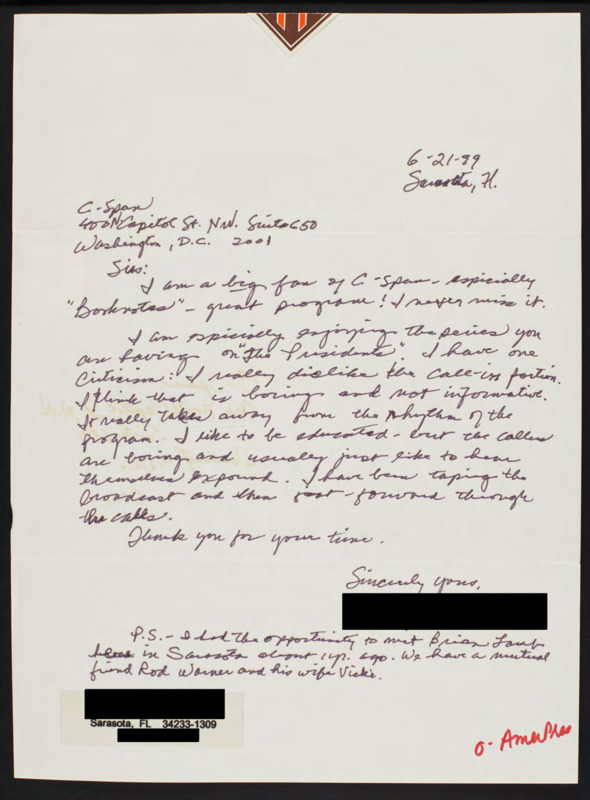 6-21-99
Sarasota, Fl.
C-Span
400 N. Capitol St. NW. Suite 650
Washington, D.C. 2001
Sirs:
I am a big fan of C-Span - especially
"Booknotes" - great program! I never miss it.
I am especially enjoying the series you
are having on "The Presidents". I have one
criticism: I really dislike the call-in portion.
I think that is boring and not informative.
It really takes away from the rhythm of the
program. I like to be educated - but the callers
are boring and usually just like to hear
themselves expound. I have been taping the
broadcast and then fast-forward through
the calls.
Thank you for your time.
Sincerely yours,
P.S. - I had the opportunity to met Brian Lamb
here in Sarasota about 1 yr. ago. We have a mutual
friend Rod Warner and his wife Vicki.
Sarasota, FL 34233-1309
O- AmerPres